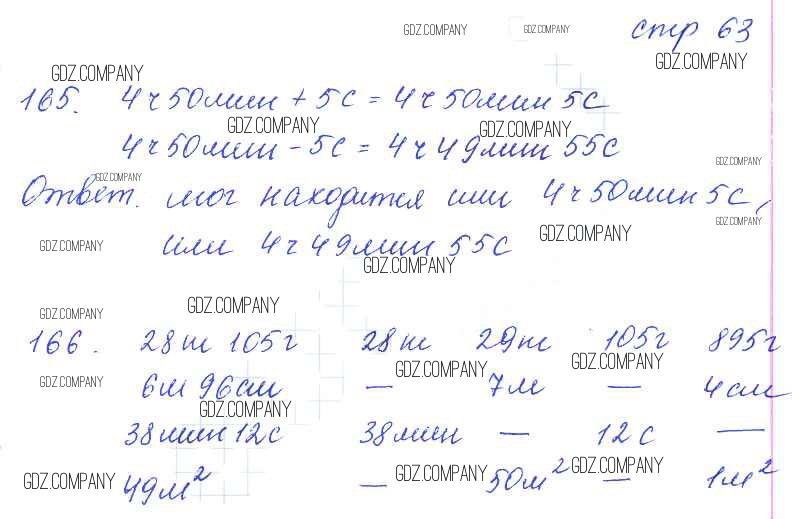 GDZ.COMPANY GDZ.COMPANY стр 63
GDZ.COMPANY GDZ.COMPANY
165. 4ч50мин + 5с = 4ч50мин 5с
GDZ.COMPANY GDZ.COMPANY
4ч50мин - 5с = 4ч49мин 55с
GDZ.COMPANY GDZ.COMPANY
Ответ. мог находится или 4ч50мин 5с,
GDZ.COMPANY
или 4ч49мин 55с GDZ.COMPANY
GDZ.COMPANY GDZ.COMPANY
GDZ.COMPANY GDZ.COMPANY
166. 28т 105г 28т 29т 105г 895г
GDZ.COMPANY GDZ.COMPANY GDZ.COMPANY
6м 96см — 7м — 4см
GDZ.COMPANY
38мин12с 38мин — 12с —
GDZ.COMPANY GDZ.COMPANY GDZ.COMPANY
49м² — 50м² — 1м²